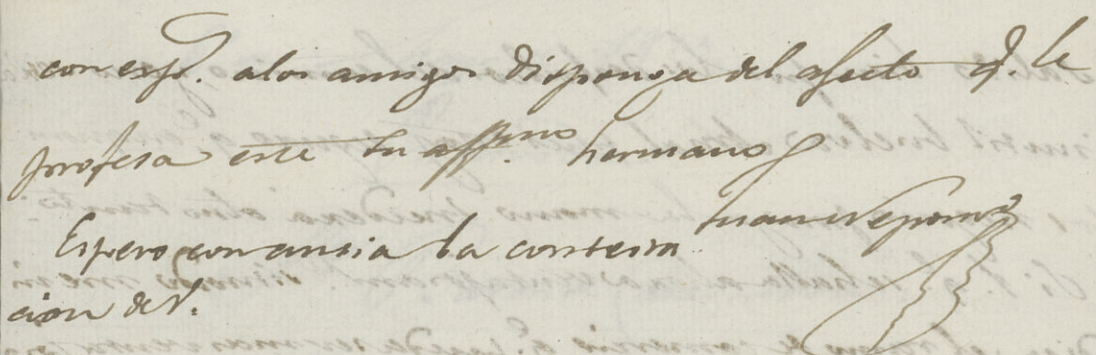 con esp. a los amigos disponga del afecto q. le
profesa este su affmo hermano
Juan Nepomo
Espero con ansia la contesta
cion de V.